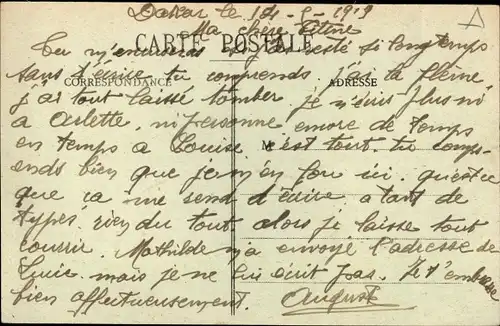 Dakar le 1919
Ma chère Titine
CARTE POSTALE
Tu m'excuseras si j'ai resté si longtemps
sans t'écrire. tu comprends. j'ai la flemme
CORRESPONDANCE ADRESSE
j'ai tout laissé tomber. je n'écris plus ni
à Arlette. ni personne encore de temps
en temps à Louise. M c'est tout tu comp-
ends bien que je m'en fou ici. qu'est ce
que ça me rend d'écrire a tant de
types. rien du tout. alors je laisse tout
courrir. Mathilde m'a envoyé l'adresse de
mais je ne lui écrit pas. Je t'embrasse
bien affectueusement. Auguste